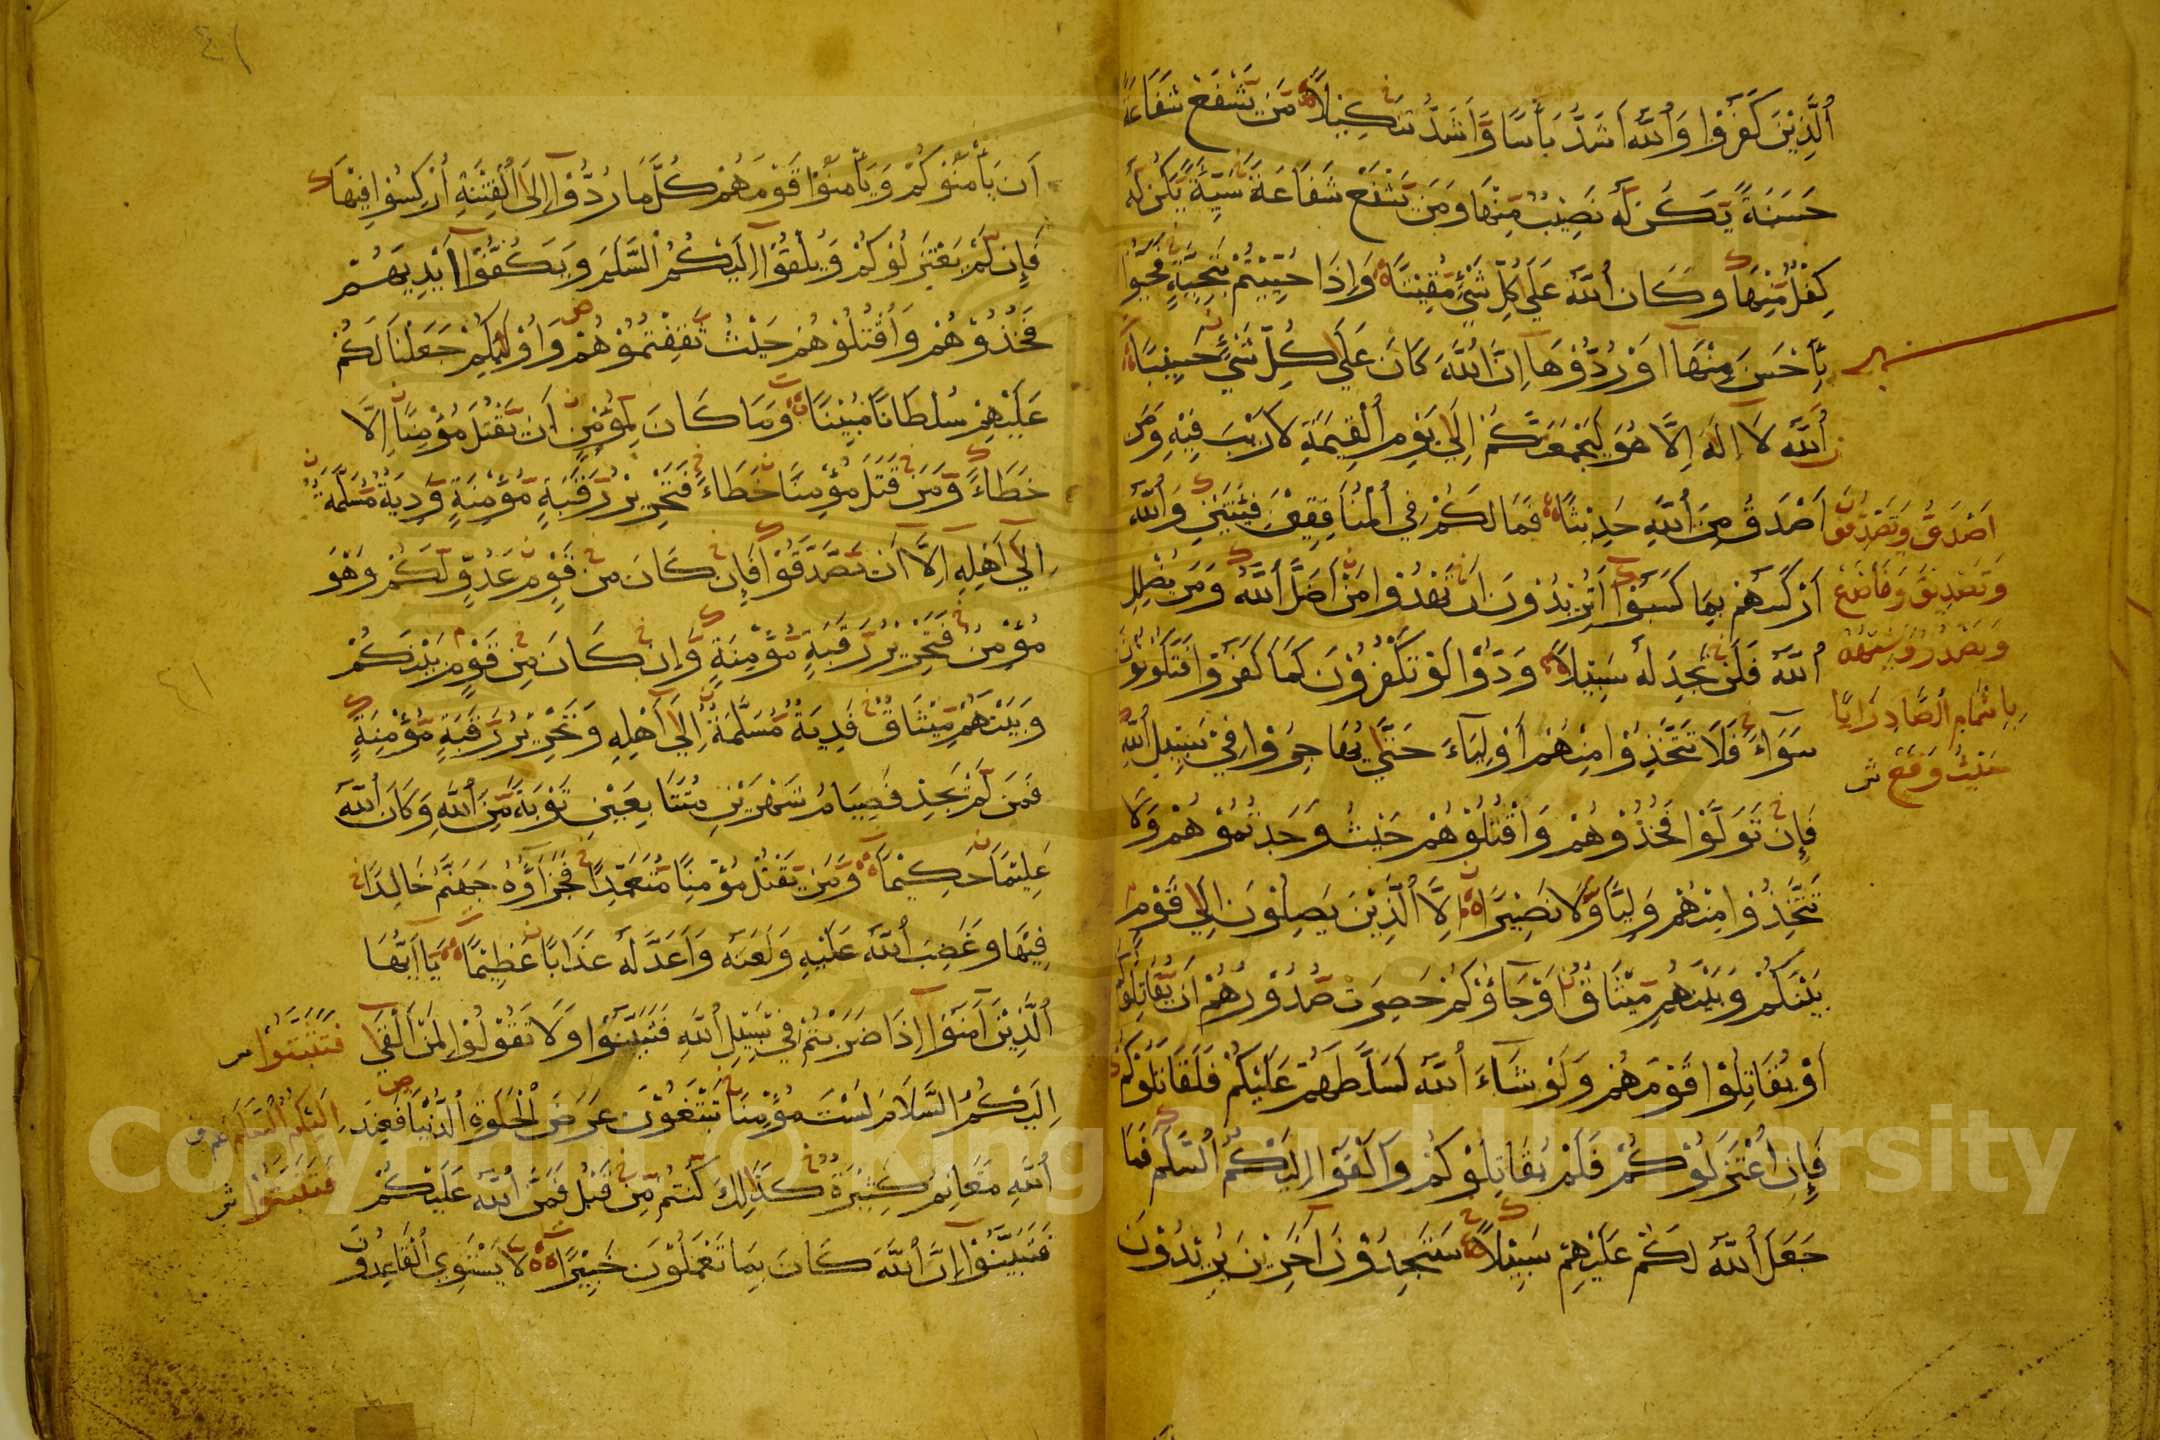 الَّذِيْنَ كَفَرُوْا وَاللّٰهُ اَشَدُّ بَأْسًا وَّاَشَدُّ تَنْكِيْلًا مَنْ يَّشْفَعْ شَفَاعَةً
حَسَنَةً يَّكُنْ لَّهُ نَصِيْبٌ مِّنْهَا وَمَنْ يَّشْفَعْ شَفَاعَةً سَيِّئَةً يَّكُنْ لَّهُ
كِفْلٌ مِّنْهَا وَكَانَ اللّٰهُ عَلٰى كُلِّ شَيْءٍ مُّقِيْتًا وَاِذَا حُيِّيْتُمْ بِتَحِيَّةٍ فَحَيُّوْا
بِاَحْسَنَ مِنْهَا اَوْ رُدُّوْهَا اِنَّ اللّٰهَ كَانَ عَلٰى كُلِّ شَيْءٍ حَسِيْبًا
اَللّٰهُ لَا اِلٰهَ اِلَّا هُوَ لَيَجْمَعَنَّكُمْ اِلٰى يَوْمِ الْقِيٰمَةِ لَا رَيْبَ فِيْهِ وَمَنْ
اَصْدَقُ مِنَ اللّٰهِ حَدِيْثًا فَمَا لَكُمْ فِي الْمُنَافِقِيْنَ فِئَتَيْنِ وَاللّٰهُ
اَصْدَقُ وَتَصْدِيْقَ
اَرْكَسَهُمْ بِمَا كَسَبُوْا اَتُرِيْدُوْنَ اَنْ تَهْدُوْا مَنْ اَضَلَّ اللّٰهُ وَمَنْ يُّضْلِلِ
اللّٰهُ فَلَنْ تَجِدَ لَهُ سَبِيْلًا وَدُّوْا لَوْ تَكْفُرُوْنَ كَمَا كَفَرُوْا فَتَكُوْنُوْنَ
سَوَآءً فَلَا تَتَّخِذُوْا مِنْهُمْ اَوْلِيَآءَ حَتّٰى يُهَاجِرُوْا فِيْ سَبِيْلِ اللّٰهِ
بِاِشْمَامِ الصَّادِ زَايًا
حَيْثُ وَقَعَ
فَاِنْ تَوَلَّوْا فَخُذُوْهُمْ وَاقْتُلُوْهُمْ حَيْثُ وَجَدْتُّمُوْهُمْ وَلَا
تَتَّخِذُوْا مِنْهُمْ وَلِيًّا وَّلَا نَصِيْرًا اِلَّا الَّذِيْنَ يَصِلُوْنَ اِلٰى قَوْمٍ
بَيْنَكُمْ وَبَيْنَهُمْ مِّيْثَاقٌ اَوْ جَآؤُكُمْ حَصِرَتْ صُدُوْرُهُمْ اَنْ يُّقَاتِلُوْكُمْ
اَوْ يُقَاتِلُوْا قَوْمَهُمْ وَلَوْ شَآءَ اللّٰهُ لَسَلَّطَهُمْ عَلَيْكُمْ فَلَقَاتَلُوْكُمْ
فَاِنِ اعْتَزَلُوْكُمْ فَلَمْ يُقَاتِلُوْكُمْ وَاَلْقَوْا اِلَيْكُمُ السَّلَمَ فَمَا
جَعَلَ اللّٰهُ لَكُمْ عَلَيْهِمْ سَبِيْلًا سَتَجِدُوْنَ اٰخَرِيْنَ يُرِيْدُوْنَ
٤١
اَنْ يَّأْمَنُوْكُمْ وَيَأْمَنُوْا قَوْمَهُمْ كُلَّمَا رُدُّوْا اِلَى الْفِتْنَةِ اُرْكِسُوْا فِيْهَا
فَاِنْ لَّمْ يَعْتَزِلُوْكُمْ وَيُلْقُوْا اِلَيْكُمُ السَّلَمَ وَيَكُفُّوْا اَيْدِيَهُمْ
فَخُذُوْهُمْ وَاقْتُلُوْهُمْ حَيْثُ ثَقِفْتُمُوْهُمْ وَاُوْلٰئِكُمْ جَعَلْنَا لَكُمْ
عَلَيْهِمْ سُلْطَانًا مُّبِيْنًا وَمَا كَانَ لِمُؤْمِنٍ اَنْ يَّقْتُلَ مُؤْمِنًا اِلَّا
خَطَاءً وَّمَنْ قَتَلَ مُؤْمِنًا خَطَاءً فَتَحْرِيْرُ رَقَبَةٍ مُّؤْمِنَةٍ وَّدِيَةٌ مُّسَلَّمَةٌ
اِلٰى اَهْلِهِ اِلَّا اَنْ يَّصَّدَّقُوْا فَاِنْ كَانَ مِنْ قَوْمٍ عَدُوٍّ لَّكُمْ وَهُوَ
مُؤْمِنٌ فَتَحْرِيْرُ رَقَبَةٍ مُّؤْمِنَةٍ وَاِنْ كَانَ مِنْ قَوْمٍ بَيْنَكُمْ
٤١
وَبَيْنَهُمْ مِّيْثَاقٌ فَدِيَةٌ مُّسَلَّمَةٌ اِلٰى اَهْلِهِ وَتَحْرِيْرُ رَقَبَةٍ مُّؤْمِنَةٍ
فَمَنْ لَّمْ يَجِدْ فَصِيَامُ شَهْرَيْنِ مُتَتَابِعَيْنِ تَوْبَةً مِّنَ اللّٰهِ وَكَانَ اللّٰهُ
عَلِيْمًا حَكِيْمًا وَمَنْ يَّقْتُلْ مُؤْمِنًا مُّتَعَمِّدًا فَجَزَآؤُهُ جَهَنَّمُ خَالِدًا
فِيْهَا وَغَضِبَ اللّٰهُ عَلَيْهِ وَلَعَنَهُ وَاَعَدَّ لَهُ عَذَابًا عَظِيْمًا يَا اَيُّهَا
الَّذِيْنَ اٰمَنُوْا اِذَا ضَرَبْتُمْ فِيْ سَبِيْلِ اللّٰهِ فَتَبَيَّنُوْا وَلَا تَقُوْلُوْا لِمَنْ اَلْقٰى
فَتَثَبَّتُوْا
اِلَيْكُمُ السَّلَامَ لَسْتَ مُؤْمِنًا تَبْتَغُوْنَ عَرَضَ الْحَيٰوةِ الدُّنْيَا فَعِنْدَ
اِلَيْكُمُ السَّلَمَ
اللّٰهِ مَغَانِمُ كَثِيْرَةٌ كَذٰلِكَ كُنْتُمْ مِّنْ قَبْلُ فَمَنَّ اللّٰهُ عَلَيْكُمْ
فَتَثَبَّتُوْا
فَتَبَيَّنُوْا اِنَّ اللّٰهَ كَانَ بِمَا تَعْمَلُوْنَ خَبِيْرًا لَا يَسْتَوِي الْقَاعِدُوْنَ
Copyright © King Saud University